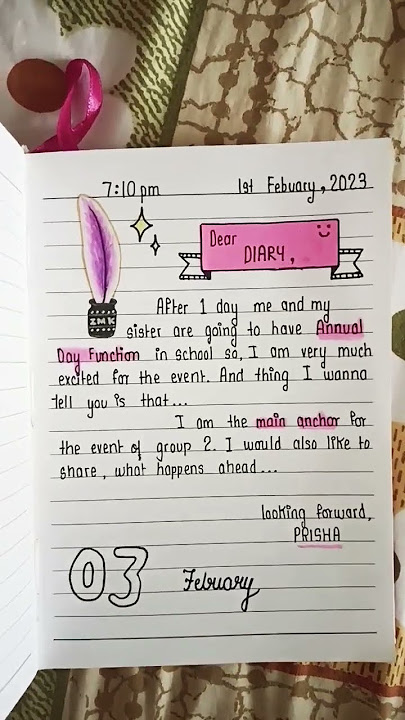 7:10 pm 1st Febuary, 2023
Dear
DIARY,
After 1 day me and my
sister are going to have Annual
Day Function in school so, I am very much
excited for the event. And thing I wanna
tell you is that...
I am the main anchor for
the event of group 2. I would also like to
share, what happens ahead...
looking forward,
PRISHA
03 February